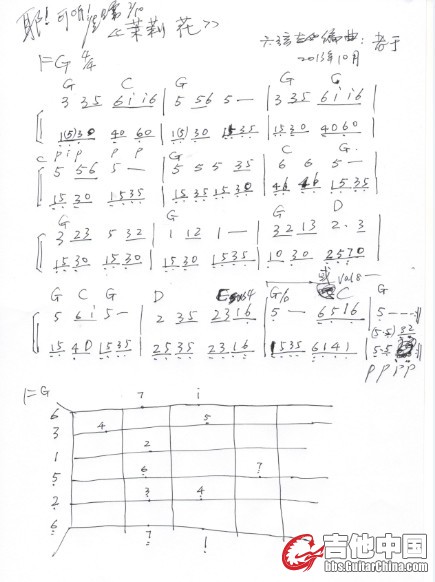 《茉莉花》
六弦吉他编曲：老于
2013年10月
1=G 4/4
G C G G C
3 35 6i i6 | 5 56 5 — | 3 35 6i i6 |
1(5)30 4060 | 1(5)30 1535 | 1530 4060 |
C P i P P P G. C G.
5 56 5 — | 5 5 5 35 | 6 6 5 — |
1530 1535 | 1535 1530 | 46 46 1535 |
G G G D
3 23 5 32 | 1 12 1 — | 3213 2·3 |
1530 1530 | 1530 1535 | 1030 2570 |
或
G C G D G C G
5 6i 5 — | 2 35 2316 | 5 — 6516 | 5 - - - ‖
(5·5) 32
1540 1535 | 2535 2316 | 1535 6141 | 5·5
P P i P
1=G
7 i
6
3 4 5
1 2
5 6 7
2 3 4
6
7 i
吉他中国
bbs.GuitarChina.com